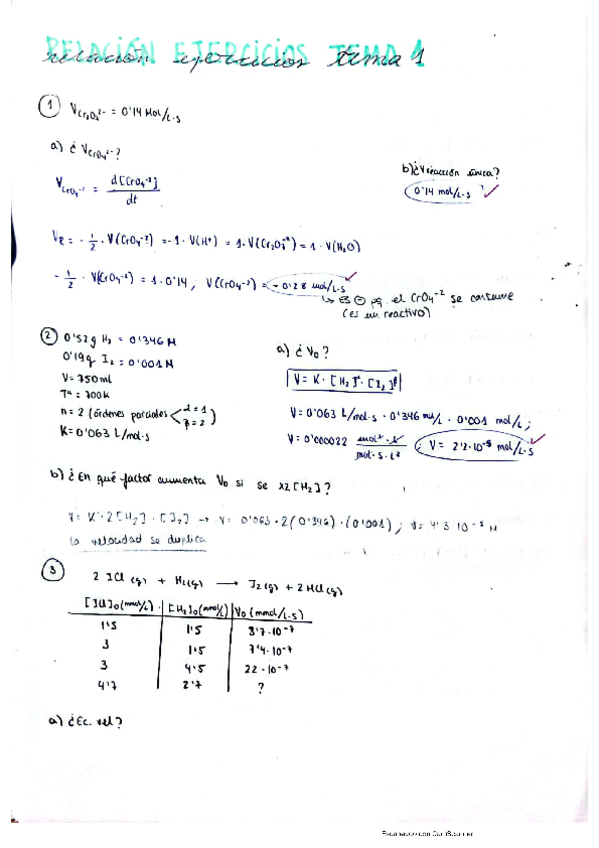 RELACIÓN EJERCICIOS TEMA 1
relación ejercicios tema 1
① V Cr₂O₇²⁻ = 0'14 Mol/L·s
a) ¿ V CrO₄²⁻?
V CrO₄⁻² = d[CrO₄⁻²] / dt
b) ¿V reacción única?
0'14 mol/L·s ✓
V_R = - 1/2 · V(CrO₄⁻²) = -1 · V(H⁺) = 1 · V(Cr₂O₇⁻²) = 1 · V(H₂O)
- 1/2 · V(CrO₄⁻²) = 1 · 0'14 ; V(CrO₄⁻²) = - 0'28 mol/L·s ✓
↳ es ⊖ pq el CrO₄⁻² se consume
(es un reactivo)
② 0'52g H₂ = 0'346 M
0'19g I₂ = 0'001 M
V = 750ml
Tª = 700K
n = 2 (órdenes parciales < α = 1
β = 2 )
K = 0'063 L/mol·s
a) ¿ V₀ ?
V = K · [H₂]^α · [I₂]^β
V = 0'063 L/mol·s · 0'346 mol/L · 0'001 mol/L ;
V = 0'000022 mol² · L / mol · s · L² ; V = 2'2·10⁻⁵ mol/L·s ✓
b) ¿En qué factor aumenta V₀ si se x2 [H₂] ?
V = K · 2[H₂] · [I₂] → V = 0'063 · 2(0'346) · (0'001) ; V = 4'3·10⁻⁵ M
la velocidad se duplica
③ 2 ICl (g) + H₂(g) ⟶ I₂(g) + 2HCl(g)
[ICl]₀(mmol/L) · [H₂]₀(mmol/L) V₀ (mmol/L·s)
1'5 1'5 3'7·10⁻⁷
3 1'5 7'4·10⁻⁷
3 4'5 22·10⁻⁷
4'7 2'7 ?
a) ¿Ec. vel?